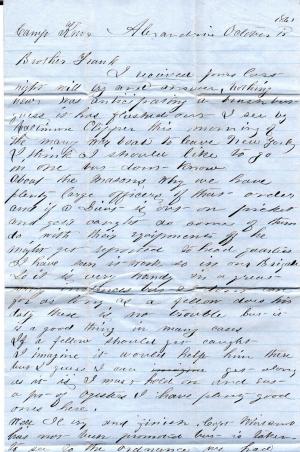 1861
Camp Knox Alexandria October 15
Brother Frank
I received yours last
night will try and answer, nothing
new was anticipating a brush but
guess it has flusted out I see by
Baltimore Clipper this morning of
the many boats to leave New York
I think I should like to go
in one but dont know
About the Masons why we have
plenty large officers of that order
and if a Lieut is out on picket
and gets caught as some of them
do with their equipments off he
might get reported to head quarters
I have seen it work so in our Brigade
So it is very handy in a great
many places but at home
as long as a fellow does his
duty there is no trouble but it
is a good thing in many cases
If a fellow should get caught
I imagine it would help him there
but I guess I can get along
as it is I must hold on and eat
a pot of Oysters I have plenty good
ones here.
Well I try and finish, Capt
has not been promoted but is taken
to see to the Ordnance we had